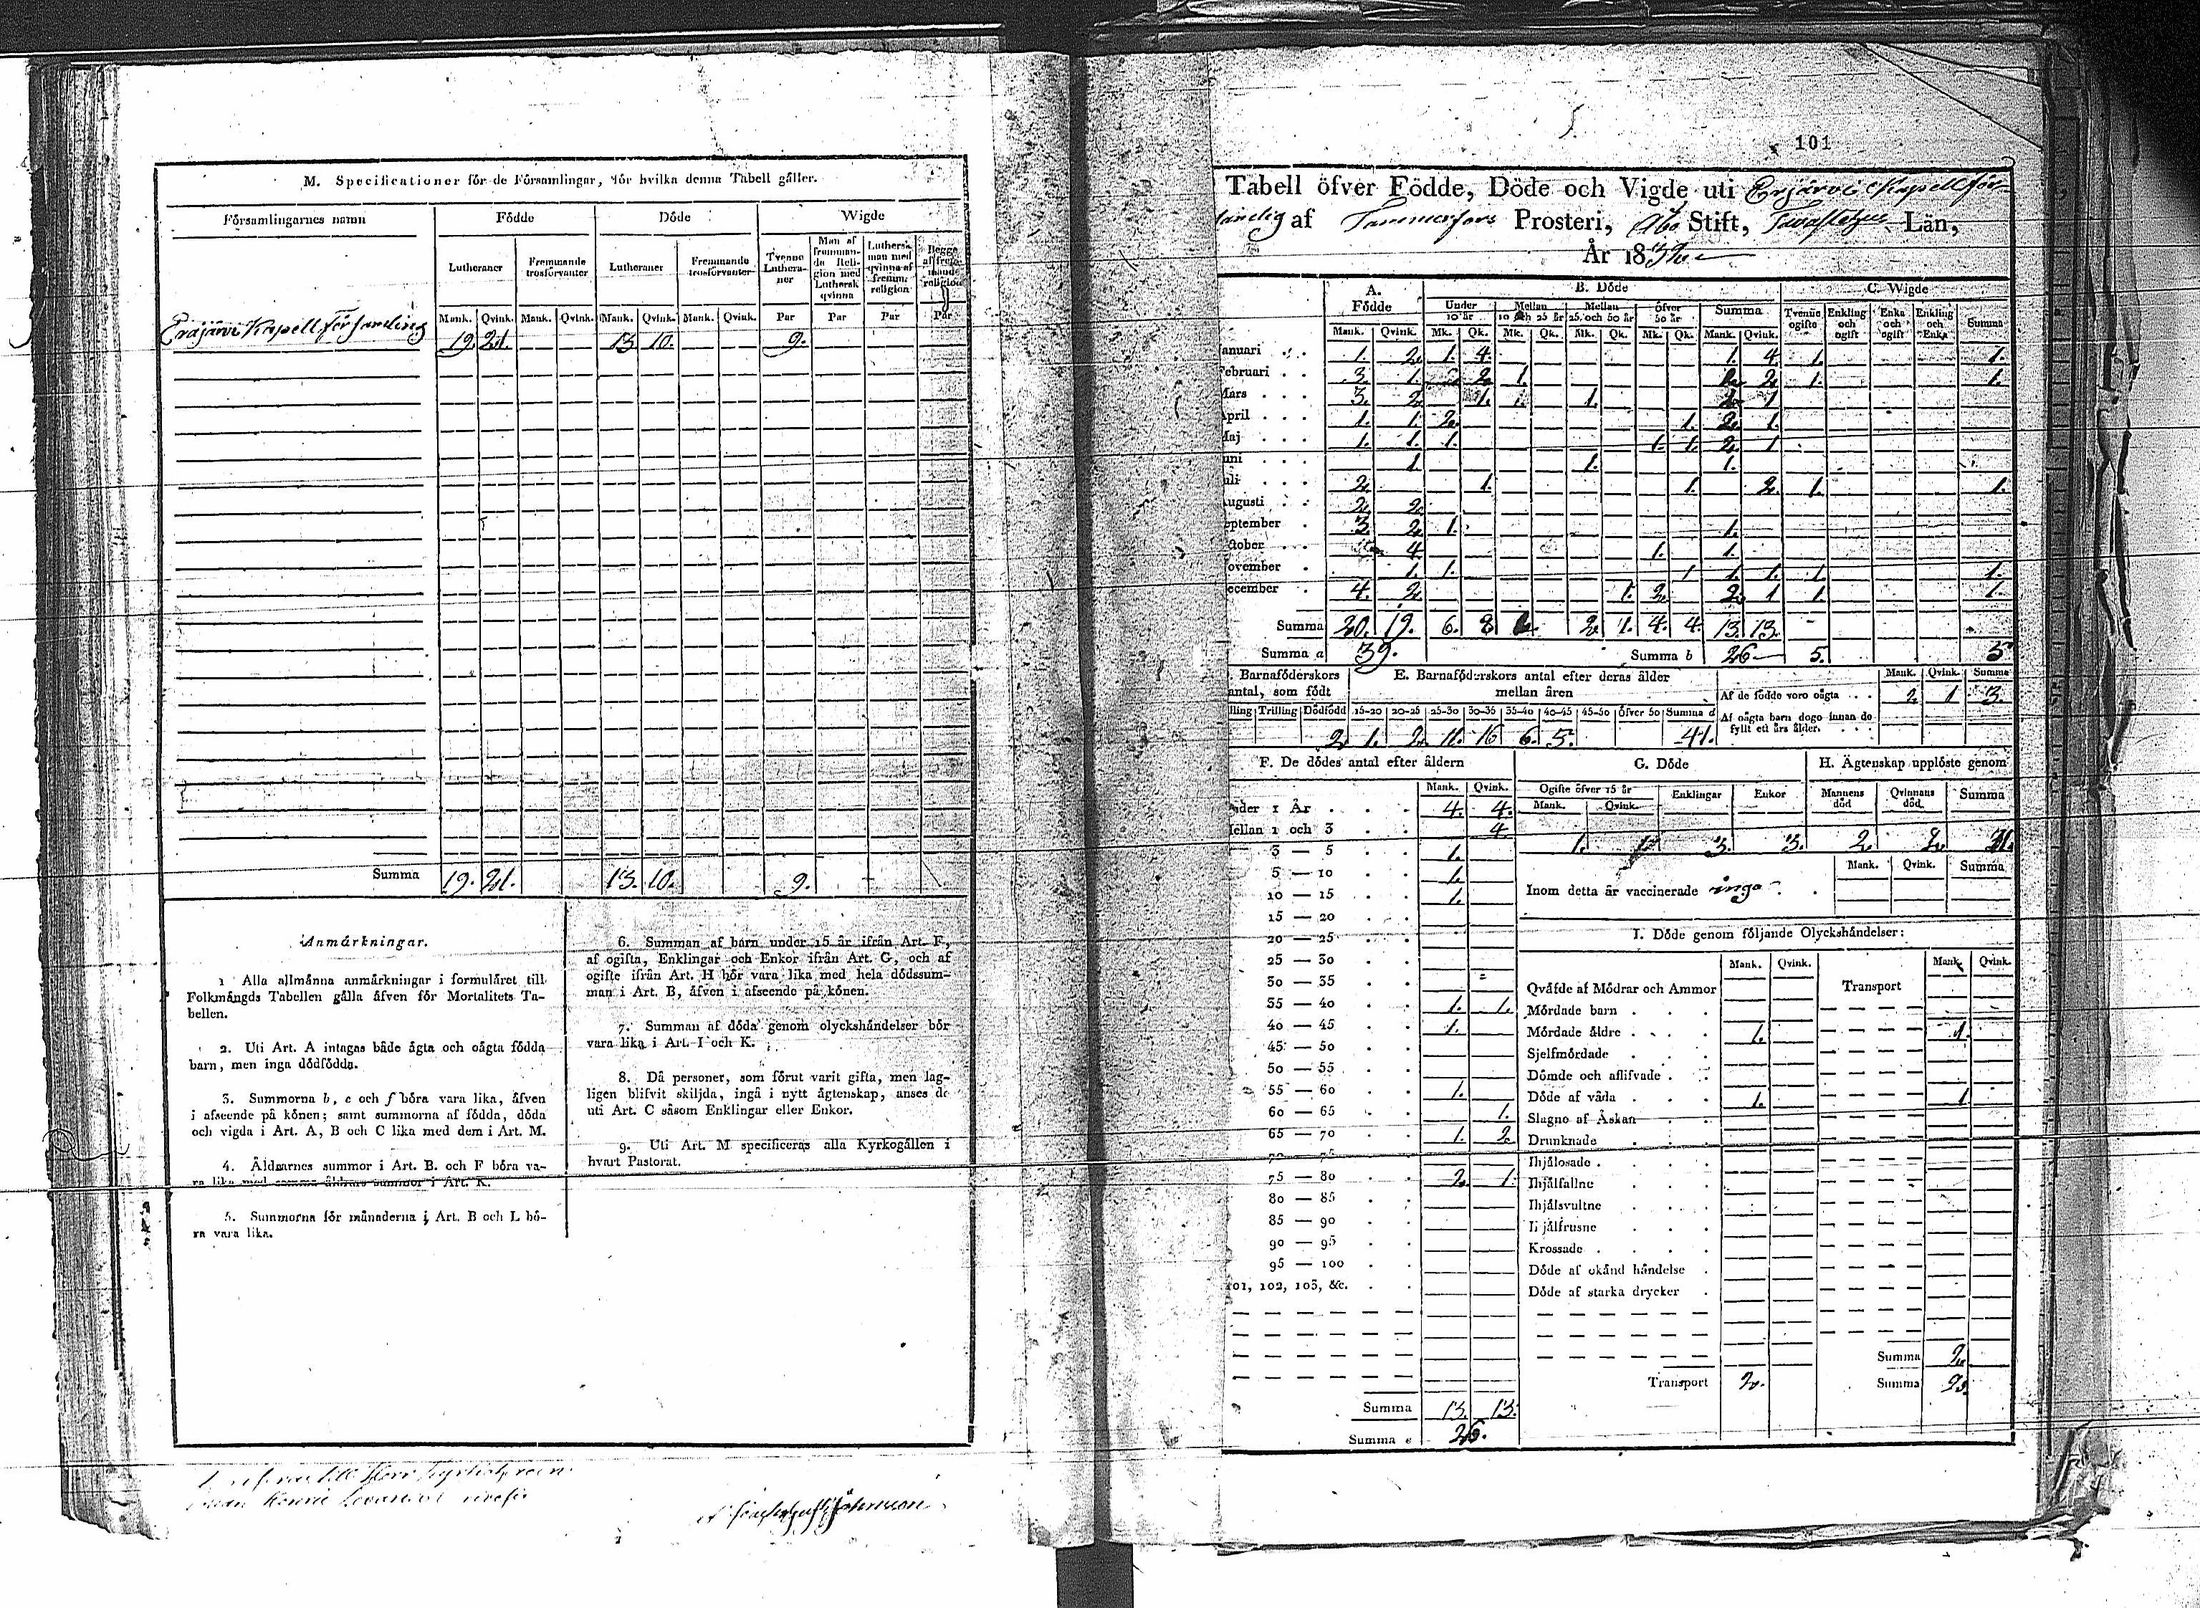 M. Specificationer för de Församlingar, för hvilka denna Tabell gäller.
Församlingarnes namn | Födde | Döde | Wigde
Lutheraner | Fremmande trosförvanter | Lutheraner | Fremmande trosförvanter | Tvenne Lutheraner | Man af fremmande Religion med Luthersk qvinna | Luthersk man med qvinna af fremm: religion | Begge af fremmande religion
Mank. | Qvink. | Mank. | Qvink. | Mank. | Qvink. | Mank. | Qvink. | Par | Par | Par | Par
Eräjärvi Kapell Församling 19. 21. 13 10. 9.
Summa 19. 21. 13. 10. 9.
Anmärkningar.
1 Alla allmänna anmärkningar i formuläret till
Folkmängds Tabellen gälla äfven för Mortalitets Ta-
bellen.
2. Uti Art. A intagas både ägta och oägta födda
barn, men inga dödfödda.
3. Summorna b, e och f böra vara lika, äfven
i afseende på könen; samt summorna af födda, döda
och vigda i Art. A, B och C lika med dem i Art. M.
4. Åldrarnes summor i Art. B. och F böra va-
ra lika med samma åldrars summor i Art. K.
5. Summorna för månaderna i Art. B och L bö-
ra vara lika.
6. Summan af barn under 15 år ifrån Art. F,
af ogifta, Enklingar och Enkor ifrån Art. G, och af
ogifte ifrån Art. H bör vara lika med hela dödssum-
man i Art. B, äfven i afseende på könen.
7. Summan af döda genom olyckshändelser bör
vara lika i Art. I och K.
8. Då personer, som förut varit gifta, men lag-
ligen blifvit skiljda, ingå i nytt ägtenskap, anses de
uti Art. C såsom Enklingar eller Enkor.
9. Uti Art. M specificeras alla Kyrkogällen i
hvart Pastorat.
101
Tabell öfver Födde, Döde och Vigde uti Erjärvi Kapell för-
samling af Tammerfors Prosteri, Åbo Stift, Tavastehus Län,
År 18
A. Födde | B. Döde | C. Wigde
Under 10 år | Mellan 10 och 25 år | Mellan 25 och 50 år | Öfver 50 år | Summa | Tvenne ogifte | Enkling och ogift | Enka och ogift | Enkling och Enka | Summa
Mank. | Qvink. | Mk. | Qk. | Mk. | Qk. | Mk. | Qk. | Mk. | Qk. | Mank. | Qvink.
anuari 1. 2. 1. 4. 1. 4. 1. 1.
ebruari 3. 1. 2. 1. 2. 1. 1.
Mars 3. 2. 1. 1. 1. 1
April 1. 1. 2. 1. 2. 1.
Maj 1. 1. 1. 1. 1. 2. 1
uni 1. 1. 1.
uli 2. 1. 1. 2. 1. 1.
ugusti 2. 2.
eptember 3. 2. 1. 1.
ctober 4. 1. 1.
ovember 1. 1. 1 1. 1. 1. 1.
ecember 4. 2. 1. 2. 2. 1 1. 1.
Summa 20. 19. 6. 8 2. 1. 4. 4. 13. 13.
Summa a 39. Summa b 26 5. 5
Barnaföderskors antal, som födt | E. Barnaföderskors antal efter deras ålder mellan åren | Mank. | Qvink. | Summa
Af de födde voro oägta 2. 1 3.
Af oägta barn dogo innan de fyllt ett års ålder.
lling | Trilling | Dödfödd | 15-20 | 20-25 | 25-30 | 30-35 | 35-40 | 40-45 | 45-50 | öfver 50 | Summa d
2. 1. 2. 11. 16 6. 5. 41.
F. De dödes antal efter åldern
Mank. | Qvink.
nder 1 År 4. 4.
ellan 1 och 3 4
3 — 5 1.
5 — 10 1.
10 — 15 1.
15 — 20
20 — 25
25 — 30
30 — 35
35 — 40 1. 1.
40 — 45 1.
45 — 50
50 — 55
55 — 60 1.
60 — 65 1.
65 — 70 1. 2.
70 — 75
75 — 80 2. 1.
80 — 85
85 — 90
90 — 95
95 — 100
101, 102, 103, &c.
Summa 13. 13.
Summa e 26.
G. Döde
Ogifte öfver 15 år | Enklingar | Enkor
Mank. | Qvink.
1. 3. 3.
H. Ägtenskap upplöste genom
Mannens död | Qvinnans död | Summa
2. 2.
Mank. | Qvink. | Summa
Inom detta år vaccinerade inga
I. Döde genom följande Olyckshändelser:
Mank. | Qvink. | Mank. | Qvink.
Transport
Qväfde af Mödrar och Ammor
Mördade barn
Mördade äldre 1. 1.
Sjelfmördade
Dömde och aflifvade
Döde af våda 1. 1
Slagne af Åskan
Drunknade
Ihjälosade
Ihjälfallne
Ihjälsvultne
Ihjälfrusne
Krossade
Döde af okänd händelse
Döde af starka drycker
Summa 2.
Transport 2. Summa 2.